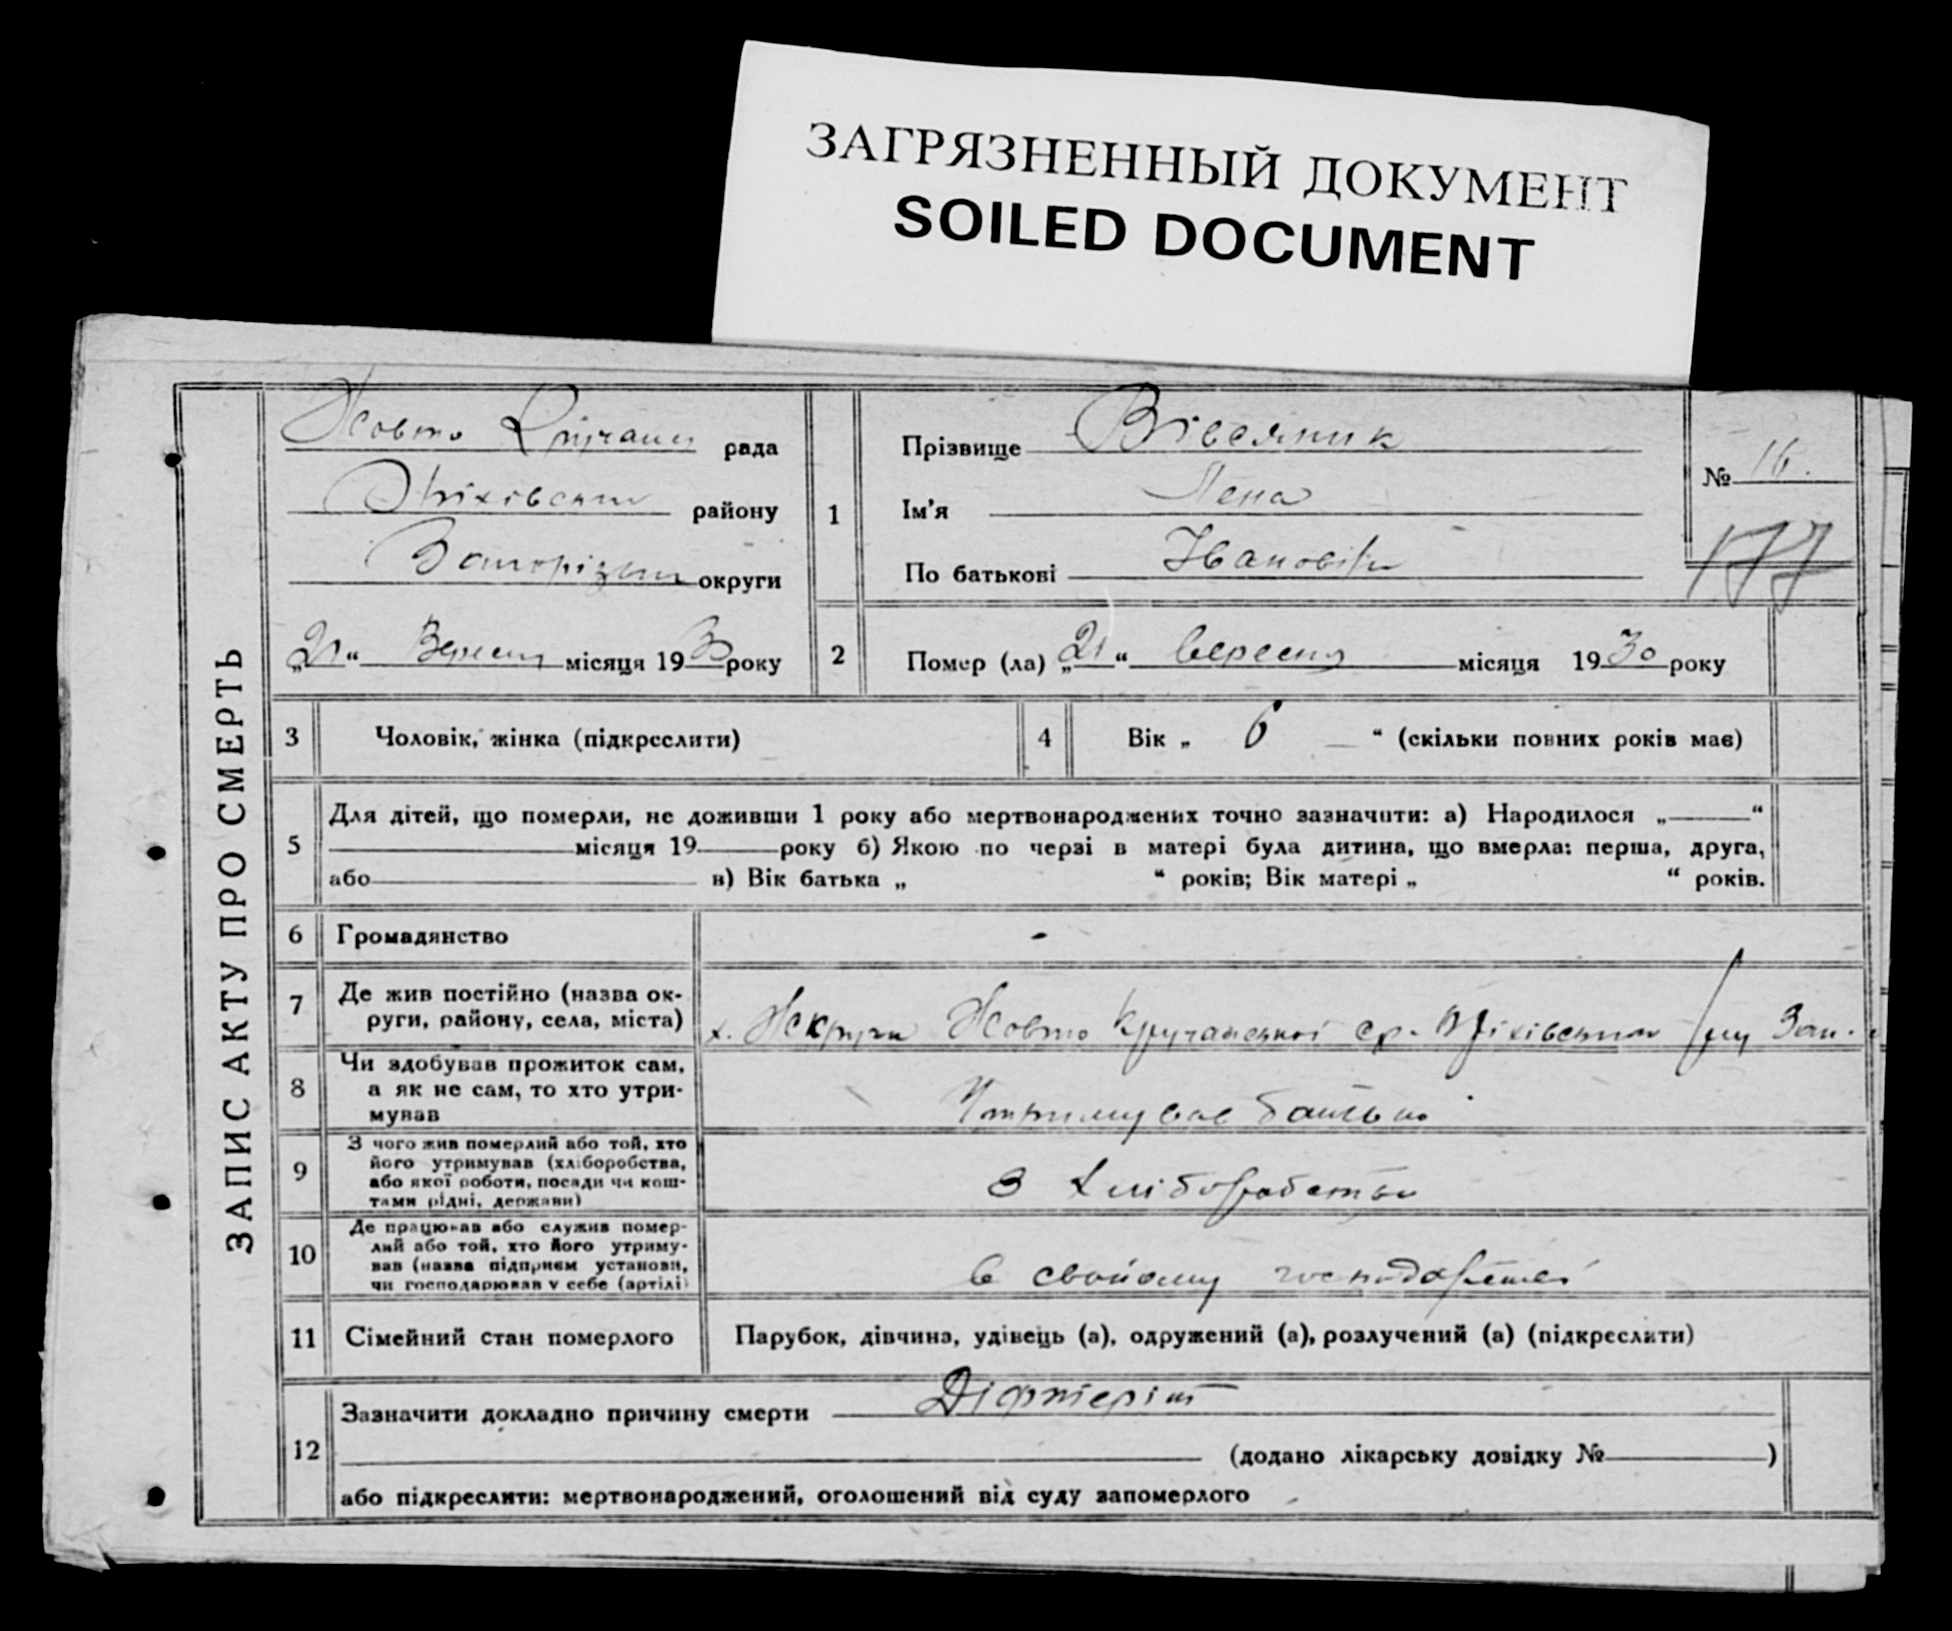 ЗАГРЯЗНЕННЫЙ ДОКУМЕНТ
SOILED DOCUMENT
ЗАПИС АКТУ ПРО СМЕРТЬ
Жовто Кручанш рада
району
округи
„21“ Вересня місяця 1930 року
1
Прізвище Вівсяник
Ім'я Лена
По батькові Іванов
№ 16.
177
2
Помер (ла) „21“ вересня місяця 1930 року
3 Чоловік, жінка (підкреслити)
4 Вік „ 6 “ (скільки повних років має)
5
Для дітей, що померли, не доживши 1 року або мертвонароджених точно зазначити: а) Народилося „ “
місяця 19 року б) Якою по черзі в матері була дитина, що вмерла: перша, друга,
або в) Вік батька „ “ років; Вік матері „ “ років.
6 Громадянство -
7 Де жив постійно (назва ок-
руги, району, села, міста)
х. Жовто Кручанської с.р. Зап.
8 Чи здобував прожиток сам,
а як не сам, то хто утри-
мував
утримував батько
9 З чого жив померлий або той, хто
його утримував (хліборобства,
або якої роботи, посади чи кош-
тами рідні, держави)
З хліборобства
10 Де працював або служив помер-
лий або той, хто його утриму-
вав (назва підприєм установи,
чи господарював у себе (артілі)
в свойому господарстві
11 Сімейний стан померлого Парубок, дівчина, удівець (а), одружений (а), розлучений (а) (підкреслити)
12
Зазначити докладно причину смерти Діфтеріт
(додано лікарську довідку № )
або підкреслити: мертвонароджений, оголошений від суду запомерлого